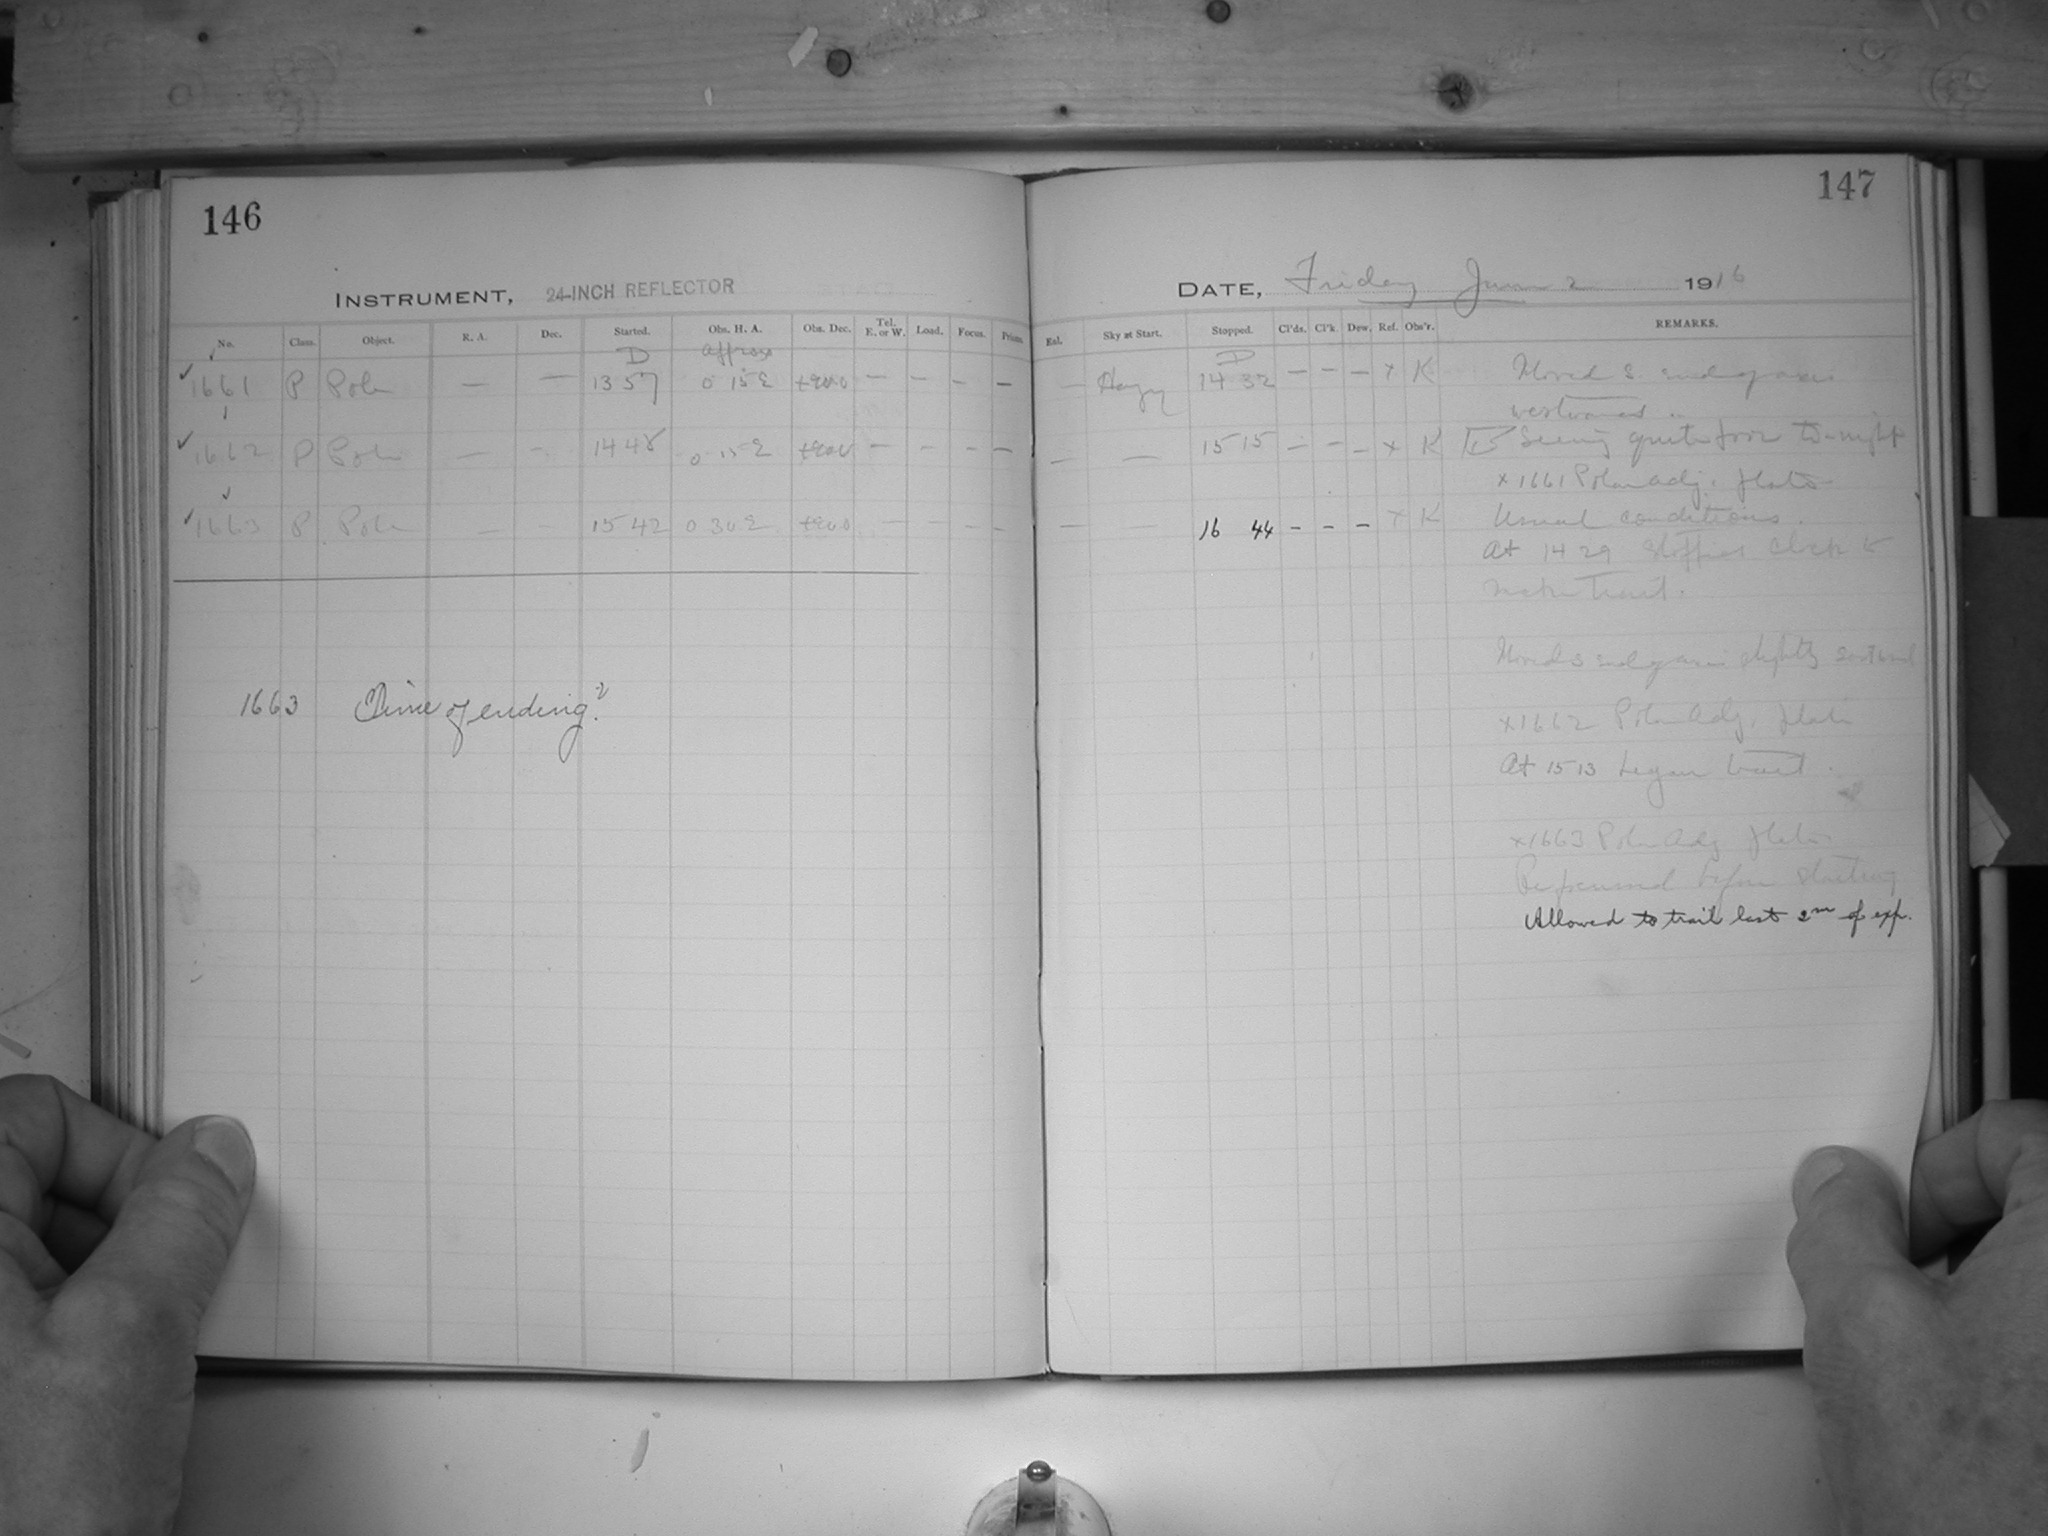 146
INSTRUMENT, 24-INCH REFLECTOR
No. Class. Object. R. A. Dec. Started. Obs. H. A. Obs. Dec. Tel. E. or W. Load. Focus. Prisms.
D approx
✓ 1661 P Pole — — 13 57 0 15 E +90.0 — — — —
✓ 1662 P Pole — — 14 48 0 15 E — — — —
✓ 1663 P Pole — — 15 42 0 30 E +90.0 — — — —
1663 Time of ending?
147
DATE, Friday June 2 1916
Sky at Start. Stopped. Cl'ds. Cl'k. Dew. Ref. Obs'r. REMARKS.
D
— Hazy 14 32 — — — x K Moved S. end of axis
westward.
— — 15 15 — — — x K Seeing quite poor to-night
x 1661 Polar Adj. plate
— — 16 44 — — — x K Usual conditions.
At 14 29 stopped clock to
make trail.
Moved S end of axis slightly
x1662 Polar Adj. plate
At 15 13 began trail.
x1663 Polar Adj plate
before starting
Allowed to trail last 2m of exp.